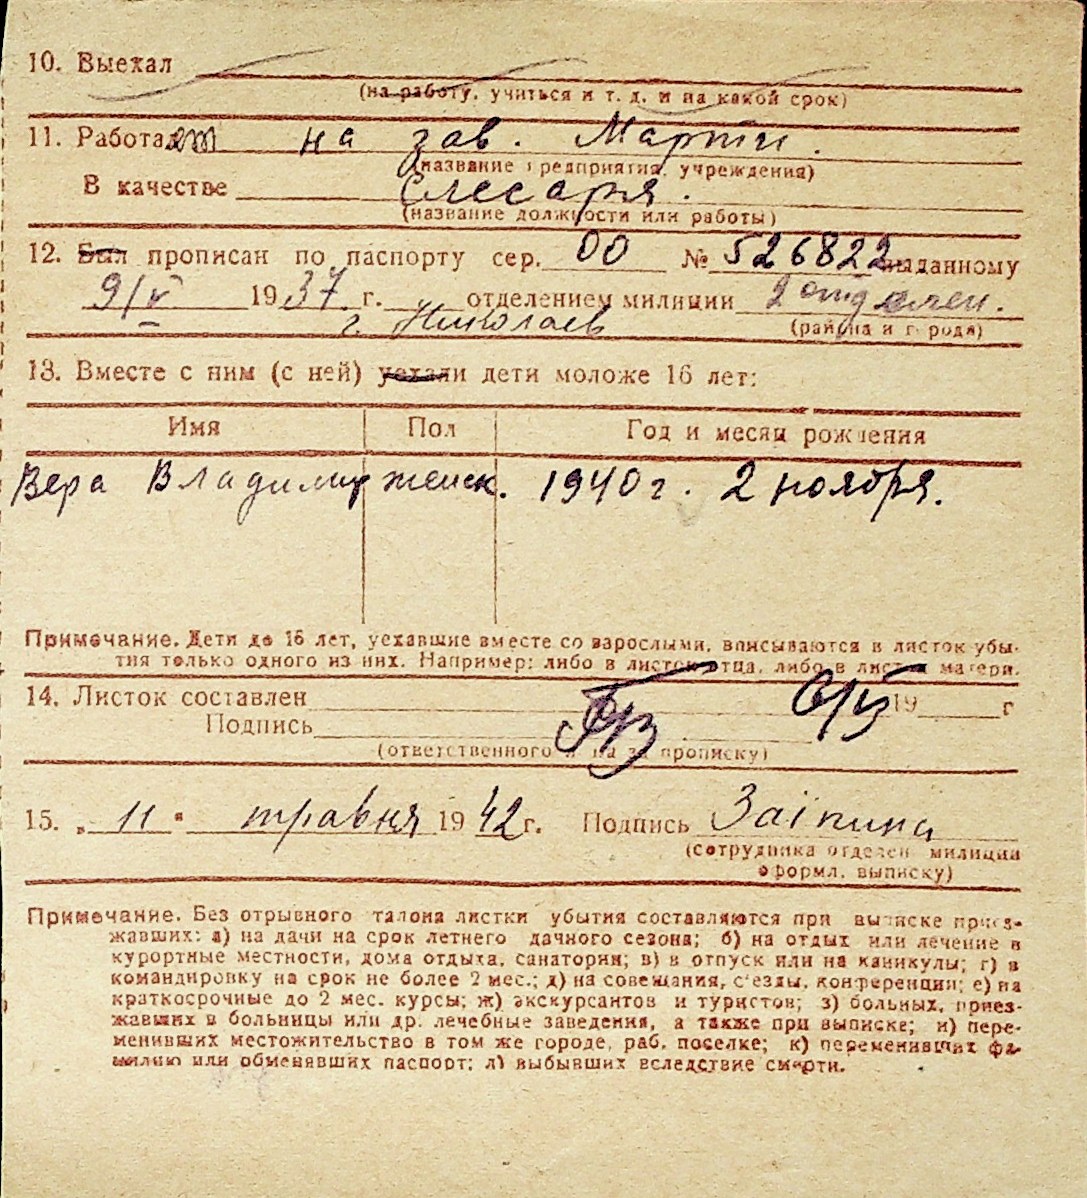 10. Выехал
(на работу, учиться и т. д. и на какой срок)
11. Работает на зав. Марти.
(название предприятия, учреждения)
В качестве Слесаря.
(название должности или работы)
12. Был прописан по паспорту сер. 00 № 526822 выданному
9/V 1937 г. отделением милиции 2 отделен.
г. Николаев (района и города)
13. Вместе с ним (с ней) уехали дети моложе 16 лет:
Имя Пол Год и месяц рождения
Вера Владимир женск. 1940 г. 2 ноября.
Примечание. Дети до 16 лет, уехавшие вместе со взрослыми, вписываются в листок убы-
тия только одного из них. Например: либо в листок отца, либо в листок матери.
14. Листок составлен 19 г
Подпись
(ответственного лица за прописку)
15. „ 11 " травня 1942 г. Подпись
(сотрудника отделен. милиции
оформл. выписку)
Примечание. Без отрывного талона листки убытия составляются при выписке приез-
жавших: а) на дачи на срок летнего дачного сезона; б) на отдых или лечение в
курортные местности, дома отдыха, санатории; в) в отпуск или на каникулы; г) в
командировку на срок не более 2 мес.; д) на совещания, с'езды, конференции; е) на
краткосрочные до 2 мес. курсы; ж) экскурсантов и туристов; з) больных, приез-
жавших в больницы или др. лечебные заведения, а также при выписке; и) пере-
менивших местожительство в том же городе, раб. поселке; к) переменивших фа-
милию или обменявших паспорт; л) выбывших вследствие смерти.